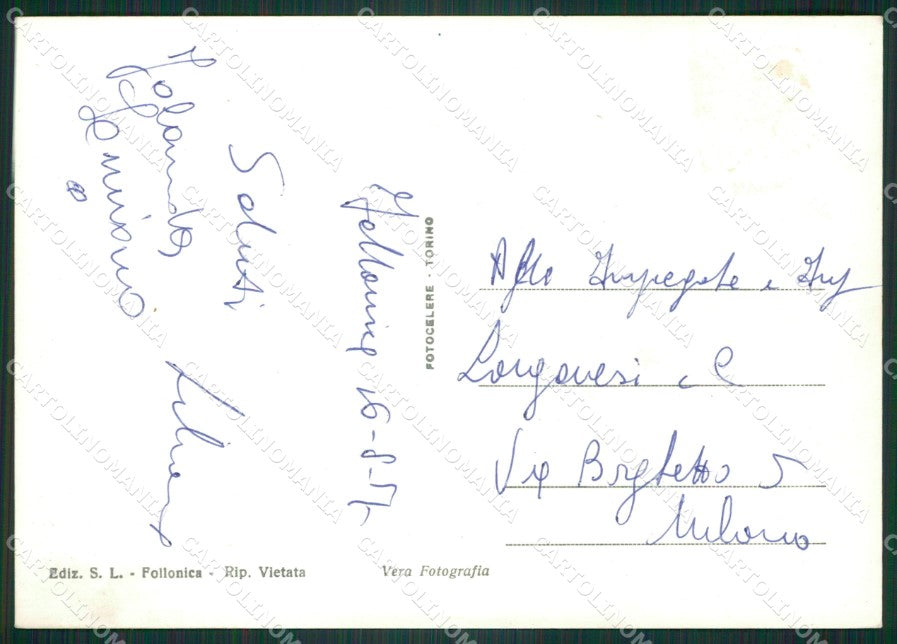 Follonica 16-8-57
Saluti
Iolanda
Liliana
FOTOCELERE - TORINO
Impiegate e
Longanesi e C
Via Borghetto 5
Milano
Ediz. S. L. - Follonica - Rip. Vietata
Vera Fotografia
CARTOLINOMANIA